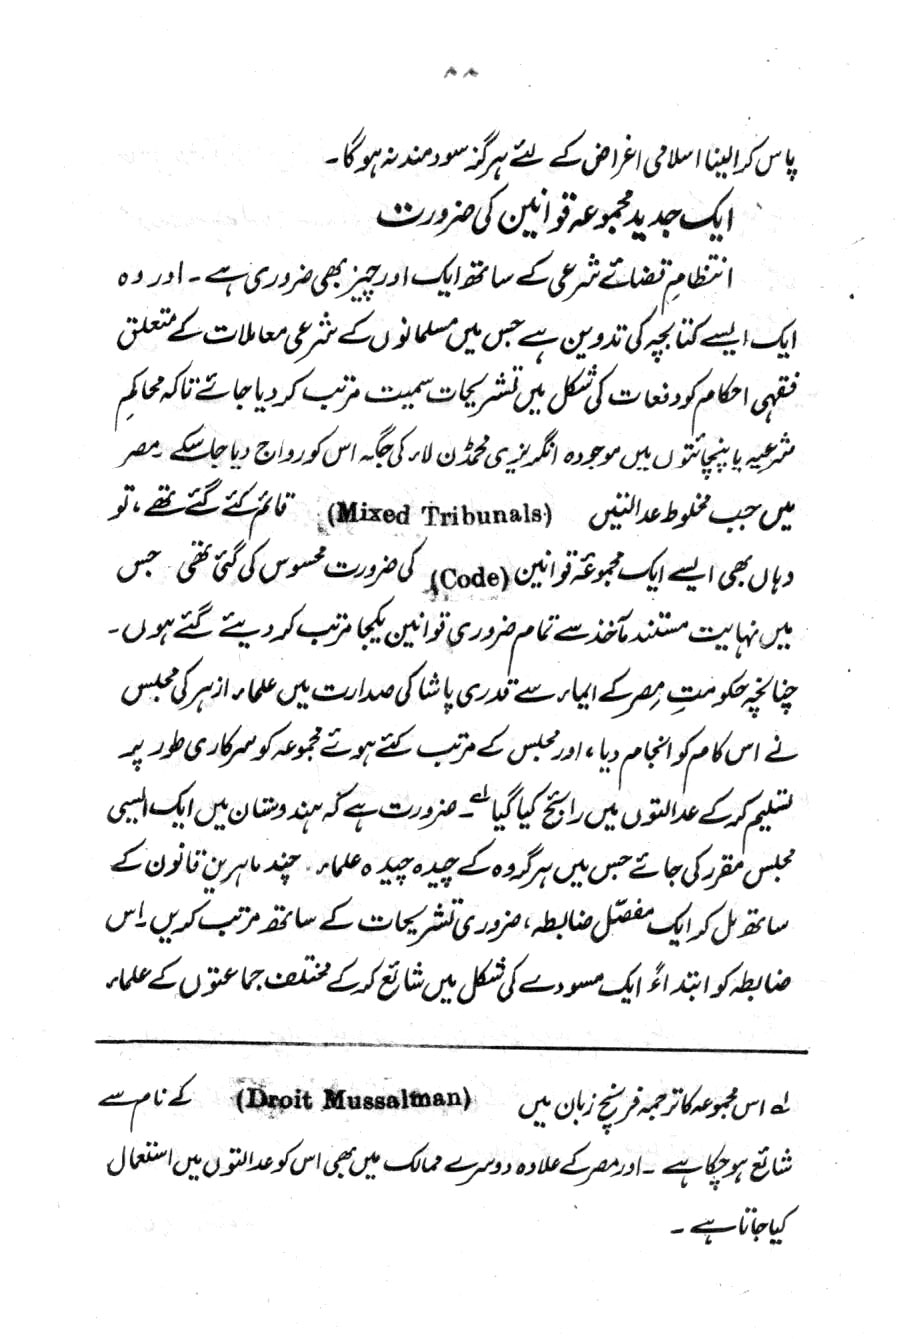 ۸۸
پاس کرالینا اسلامی اغراض کے لئے ہرگز سودمند نہ ہوگا۔
ایک جدید مجموعہ قوانین کی ضرورت
انتظامِ قضائے شرعی کے ساتھ ایک اور چیز بھی ضروری ہے۔ اور وہ
ایک ایسے کتابچہ کی تدوین ہے جس میں مسلمانوں کے شرعی معاملات کے متعلق
فقہی احکام کو دفعات کی شکل میں تشریحات سمیت مرتب کر دیا جائے تاکہ محاکمِ
شرعیہ یا پنچائتوں میں موجودہ انگریزی محمڈن لاء کی جگہ اس کو رواج دیا جا سکے۔ مصر
میں جب مخلوط عدالتیں (Mixed Tribunals) قائم کئے گئے تھے، تو
وہاں بھی ایسے ایک مجموعۂ قوانین (Code) کی ضرورت محسوس کی گئی تھی جس
میں نہایت مستند مآخذ سے تمام ضروری قوانین یکجا مرتب کر دیئے گئے ہوں۔
چنانچہ حکومتِ مصر کے ایماء سے قدری پاشا کی صدارت میں علماء ازہر کی مجلس
نے اس کام کو انجام دیا، اور مجلس کے مرتب کئے ہوئے مجموعہ کو سرکاری طور پر
تسلیم کر کے عدالتوں میں رائج کیا گیا لہ۔ ضرورت ہے کہ ہندوستان میں ایک ایسی
مجلس مقرر کی جائے جس میں ہر گروہ کے چیدہ چیدہ علماء، چند ماہرینِ قانون کے
ساتھ مل کر ایک مفصّل ضابطہ، ضروری تشریحات کے ساتھ مرتب کریں۔ اس
ضابطہ کو ابتداءً ایک مسودے کی شکل میں شائع کر کے مختلف جماعتوں کے علماء
لہ اس مجموعہ کا ترجمہ فرنچ زبان میں (Droit Mussalman) کے نام سے
شائع ہو چکا ہے۔ اور مصر کے علاوہ دوسرے ممالک میں بھی اس کو عدالتوں میں استعمال
کیا جاتا ہے۔